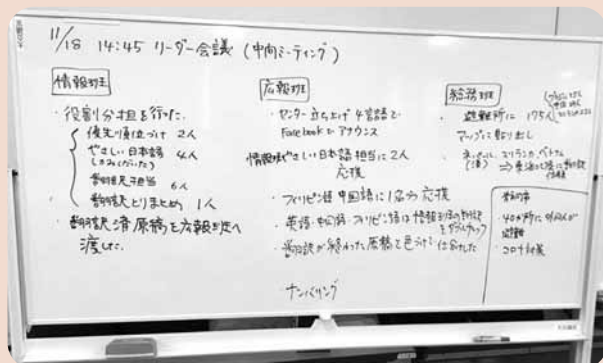 11/18 14:45 リーダー会議 (中向ミーティング)
情報班
・役割分担を行った.
優先順位づけ 2人
やさしい日本語 4人
翻訳担当 6人
翻訳とりまとめ 1人
・翻訳済原稿を広報班へ
渡した.
広報班
・センター立ち上げ 4言語で
Facebookでアナウンス
情報班やさしい日本語担当に2人
応援
・フィリピン語 中国語に1名ずつ応援
・英語・中国語・フィリピン語は情報班の翻訳
をダブルチェック
・翻訳が終わった原稿を色分け
ナンバリング
総務班
・避難所に 175人
マップに貼り出し
ネパール、スリランカ、ベトナム
40か所に
避難
・コロナ対策